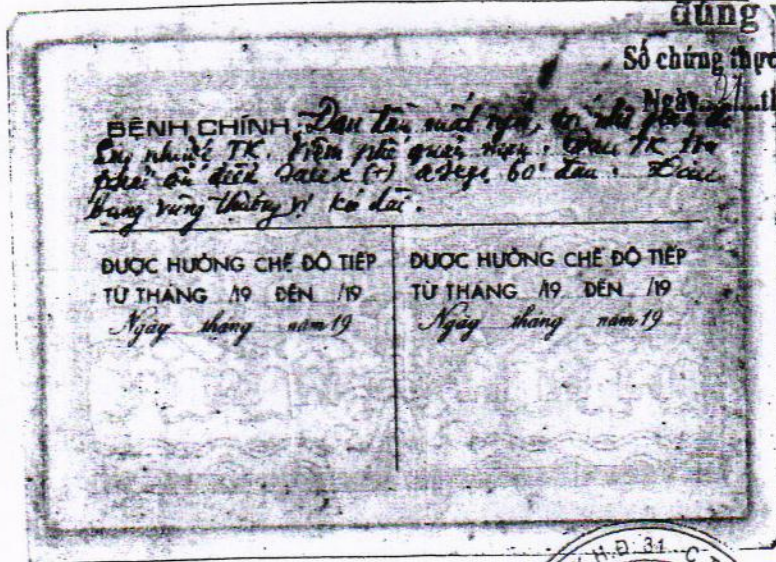 đúng
Số chứng thực
Ngày
BỆNH CHÍNH Đau đầu mất ngủ, trí nhớ
Suy nhược TK. Viêm phế quản mạn. Đau TK
phải ấn điểm (+) 60' đầu. Đau
bụng vùng thượng vị kéo dài.
ĐƯỢC HƯỞNG CHẾ ĐỘ TIẾP
TỪ THÁNG /19 ĐẾN /19
Ngày tháng năm 19
ĐƯỢC HƯỞNG CHẾ ĐỘ TIẾP
TỪ THÁNG /19 ĐẾN /19
Ngày tháng năm 19
H.Đ. 31 C